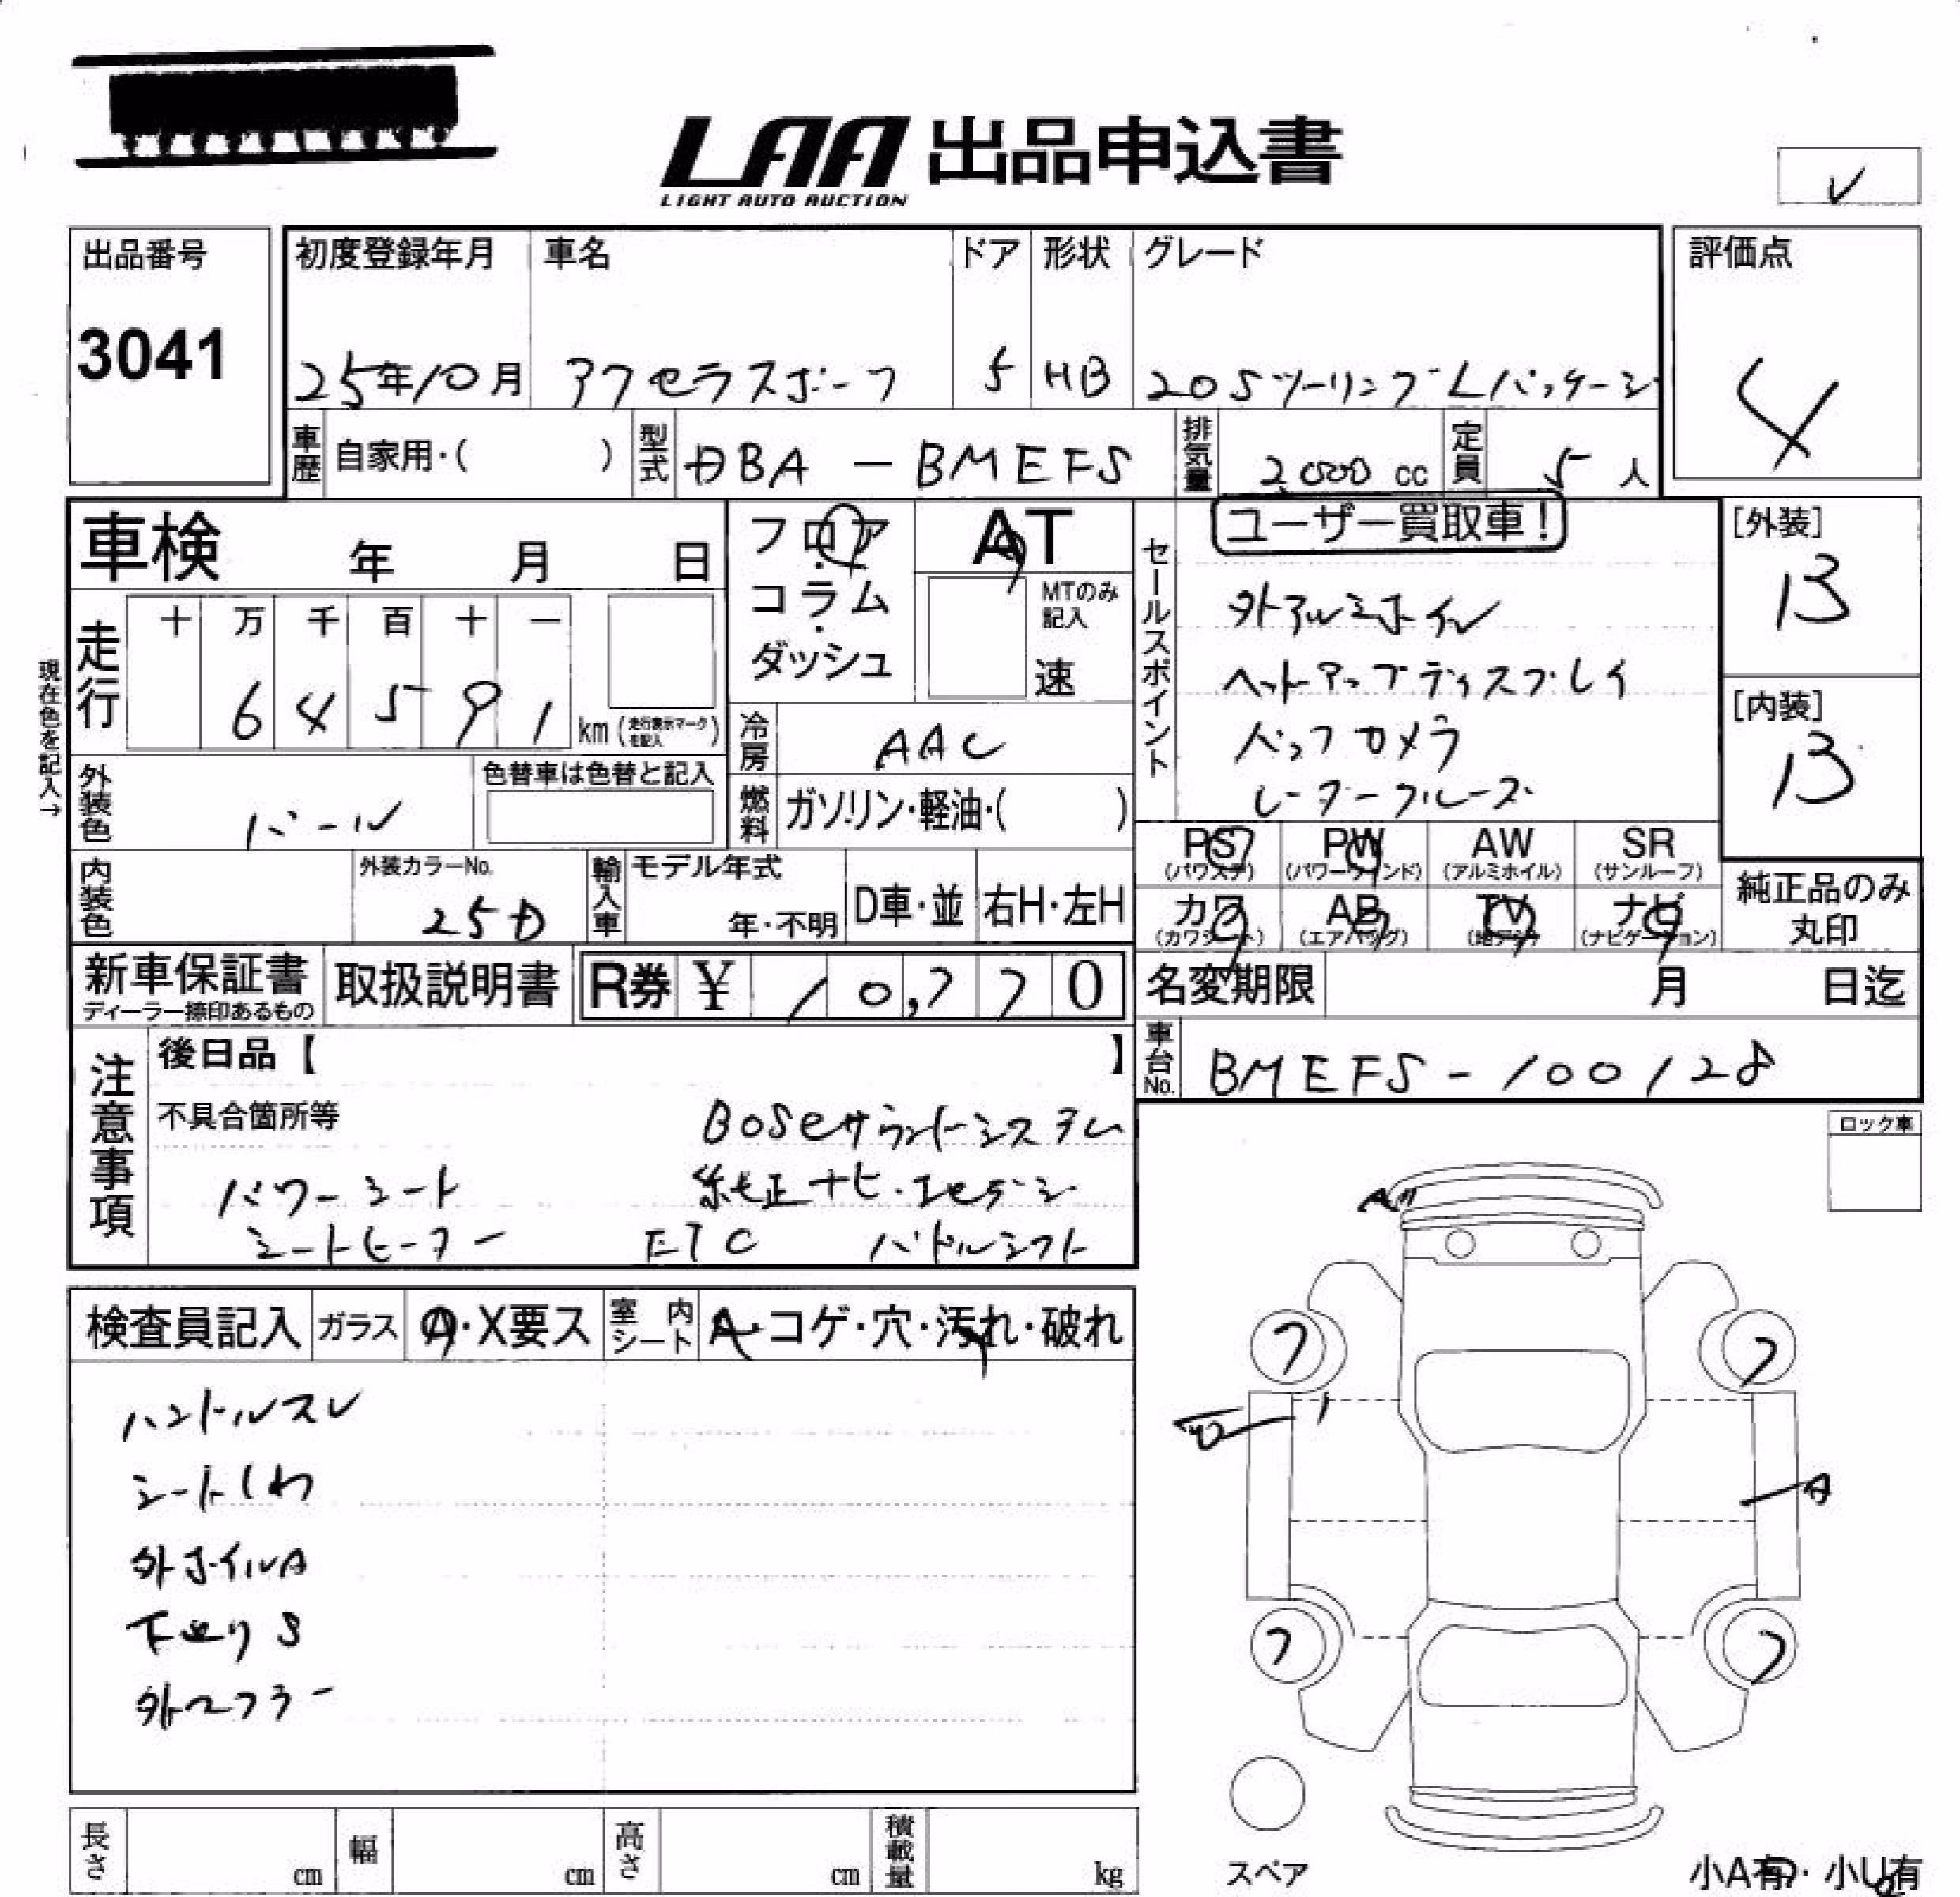 LAA 出品申込書
LIGHT AUTO AUCTION
✓
出品番号
3041
初度登録年月 車名 ドア 形状 グレード
25年10月 アクセラスポーツ 5 HB 20Sツーリング Lパッケージ
評価点
4
車歴 自家用・( ) 型式 DBA - BMEFS 排気量 2000 cc 定員 5 人
車検 年 月 日
フロア・コラム・ダッシュ
AT
MTのみ記入
速
セールスポイント
ユーザー買取車!
外アルミホイル
ヘットアップディスプレイ
バックカメラ
レーダークルーズ
[外装]
B
[内装]
B
現在色を記入→
走行 十 万 千 百 十 一
6 4 5 9 1 km (走行表示マークを記入)
冷房 AAC
外装色 パール 色替車は色替と記入
燃料 ガソリン・軽油・( )
PS (パワステ) PW (パワーウインド) AW (アルミホイル) SR (サンルーフ)
カワ (カワシート) AB (エアバッグ) TV (地デジ) ナビ (ナビゲーション)
純正品のみ丸印
内装色 外装カラーNo. 25D 輸入車 モデル年式 年・不明 D車・並 右H・左H
新車保証書 ディーラー捺印あるもの 取扱説明書 R券 ¥ 10,770
名変期限 月 日迄
車台No. BMEFS-100128
注意事項
後日品【 】
不具合箇所等
BOSEサウンドシステム
パワーシート 純正ナビ・フルセグ
シートヒーター ETC パドルシフト
ロック車
検査員記入 ガラス A・X要ス 室内シート A・コゲ・穴・汚れ・破れ
ハンドルスレ
シートしわ
外ホイルA
下廻りS
外マフラー
A"
フ フ
A
フ フ
スペア
小A有・小U有
長さ cm 幅 cm 高さ cm 積載量 kg